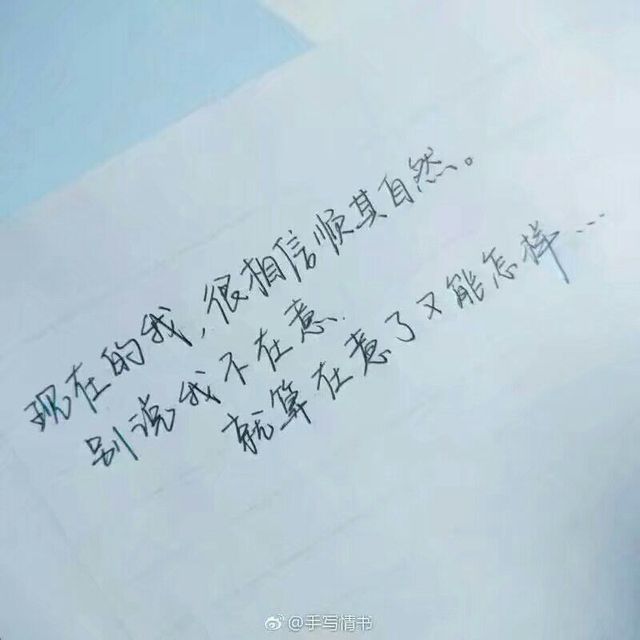 现在的我,很相信顺其自然。
别说我不在意.
就算在意了又能怎样...
@手写情书